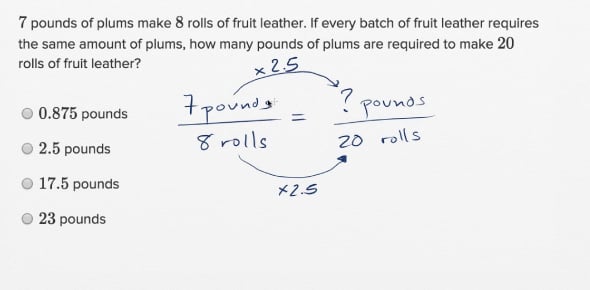 7 pounds of plums make 8 rolls of fruit leather. If every batch of fruit leather requires
the same amount of plums, how many pounds of plums are required to make 20
rolls of fruit leather?
×2.5
7 pounds = ? pounds
8 rolls 20 rolls
×2.5
0.875 pounds
2.5 pounds
17.5 pounds
23 pounds